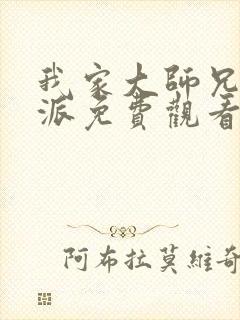 我家大師兄
派免費觀看
阿布拉莫維奇